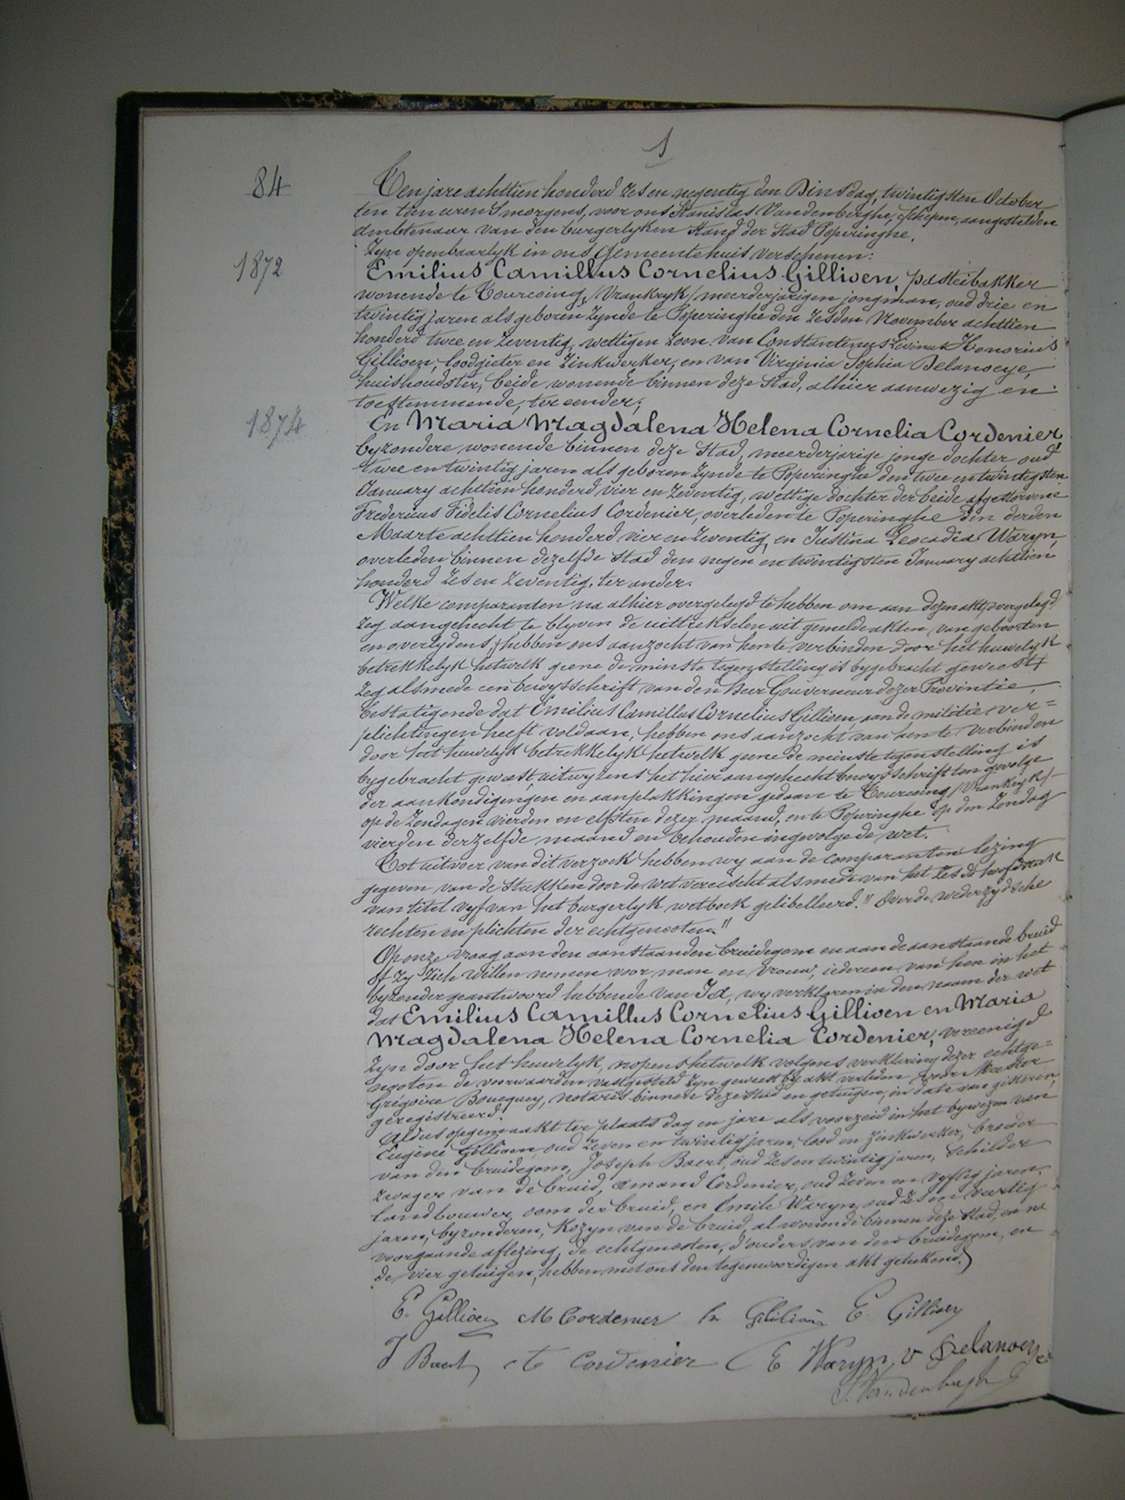 1
84
Ten jare achttien honderd zes en negentig den Dinsdag, twintigsten October
ten tien uren 's morgens, voor ons Stanislas Vandenberghe, schepen, aangestelden
ambtenaar van den burgerlyken stand der Stad Poperinghe,
zyn openbaarlyk in ons gemeentehuis verschenen:
1872
Emilius Camillus Cornelius Gillioen, pasteibakker
wonende te Tourcoing, /Vrankryk/ meerderjarigen jongman, oud drie en
twintig jaren als geboren zynde te Poperinghe den zesden November achttien
honderd twee en zeventig, wettigen zoon van Constantinus Livinus Honorius
Gillioen, loodgieter en zinkwerker, en van Virginia Sophia Delanoeye,
huishoudster, beide wonende binnen deze Stad, alhier aanwezig en
toestemmende, ter eender;
1874
En Maria Magdalena Helena Cornelia Cordenier,
byzondere wonende binnen deze Stad, meerderjarige jonge dochter oud
twee en twintig jaren als geboren zynde te Poperinghe den twee en twintigsten
January achttien honderd vier en zeventig, wettige dochter der beide afgestorvene
Frederius Fidelis Cornelius Cordenier, overleden te Poperinghe den derden
Maarte achttien honderd vier en zeventig, en Justina Leocadia Waryn,
overleden binnen dezelfde Stad den negen en twintigsten January achttien
honderd zes en zeventig, ter ander.
Welke comparanten na alhier overgelegd te hebben om aan dezen akt
aangehecht te blyven de uittrekselen uit gemelde akten van geboorten
en overlydens, hebben ons aanzocht van hen te verbinden door het huwelyk
betrekkelyk hetwelk geene de minste tegenstelling is bygebracht geweest
alsmede een bewysschrift van den Heer Gouverneur dezer Provintie,
bestatigende dat Emilius Camillus Cornelius Gillioen aan de militie ver=
plichtingen heeft voldaan, hebben ons aanzocht van hen te verbinden
door het huwelyk betrekkelyk hetwelk geene de minste tegenstelling is
bygebracht geweest, uitwyzens het hier aangehecht bewysschrift ten gevolge
der aankondigingen en aanplakkingen gedaan te Tourcoing /Vrankryk/
op de Zondagen vierden en elfsten dezer maand, en te Poperinghe op den Zondag
vierden derzelfde maand en behouden ingevolge de wet.
Tot uitvoer van dit verzoek hebben wy aan de comparanten lezing
gegeven van de stukken door de wet vereischt alsmede van het zesde hoofdstuk
van titel vyf van het burgerlyk wetboek gelibelleerd. "Over de wederzydsche
rechten en plichten der echtgenoten."
Op onze vraag aan den aanstaanden bruidegom en aan de aanstaande bruid
of zy zich willen nemen voor man en vrouw, iedereen van hen in het
byzonder geantwoord hebbende van Ja, wy verklaren in den naam der wet
dat Emilius Camillus Cornelius Gillioen en Maria
Magdalena Helena Cornelia Cordenier, vereenigd
zyn door het huwelyk, nopens hetwelk volgens verklaring dezer echtge=
noten de voorwaarden vastgesteld zyn geweest by akt verleden voor Meester
Grégoire Boucquey, notaris binnen deze stad en getuigen, in date van gisteren,
geregistreerd.
Aldus opgemaakt ter plaats dag en jare als voorzeid in het bywezen van
Eugène Gillioen, oud zeven en twintig jaren, lood en zinkwerker, broeder
van den bruidegom, Joseph Baert, oud zes en twintig jaren, schilder
zwager van de bruid, Amand Cordenier, oud zeven en vyftig jaren,
landbouwer, oom der bruid, en Emile Waryn, oud zes en veertig
jaren, byzonderen, kozyn van de bruid, al wonende binnen deze Stad, en na
voorgaande aflezing, de echtgenoten, d'ouders van den bruidegom, en
de vier getuigen, hebben met ons den tegenwoordigen akt geteekend.
E. Gillioen M Cordenier Gillioen E. Gillioen
J Baert Cordenier E Waryn v Delanoeye
S. Vandenberghe